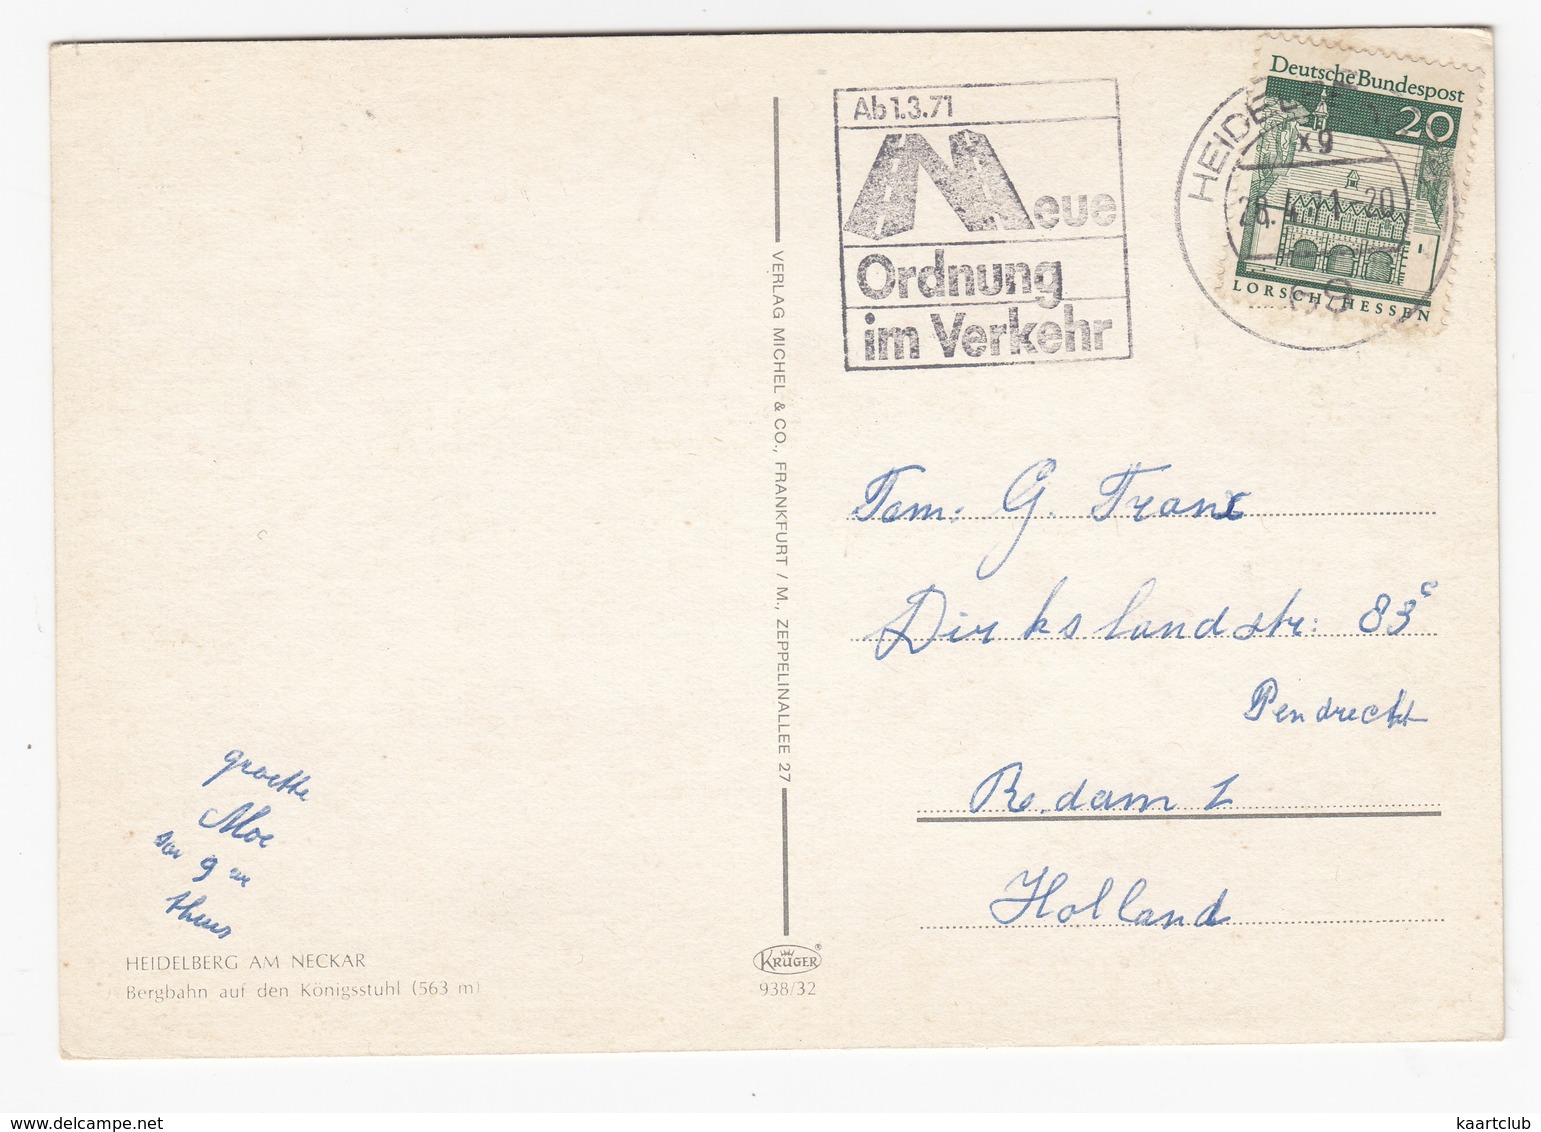 Ab 1.3.71
Neue
Ordnung
im Verkehr
HEIDELBE
xg
28.4.71-20
69
Deutsche Bundespost
20
LORSCH/HESSEN
VERLAG MICHEL & CO., FRANKFURT / M., ZEPPELINALLEE 27
Fam. G. Frans
Dirkslandstr: 83c
Pendrecht
R.dam 2
Holland
groette
Moe
g
thuis
HEIDELBERG AM NECKAR
Bergbahn auf den Königsstuhl (563 m)
KRÜGER®
938/32
www.delcampe.net
kaartclub